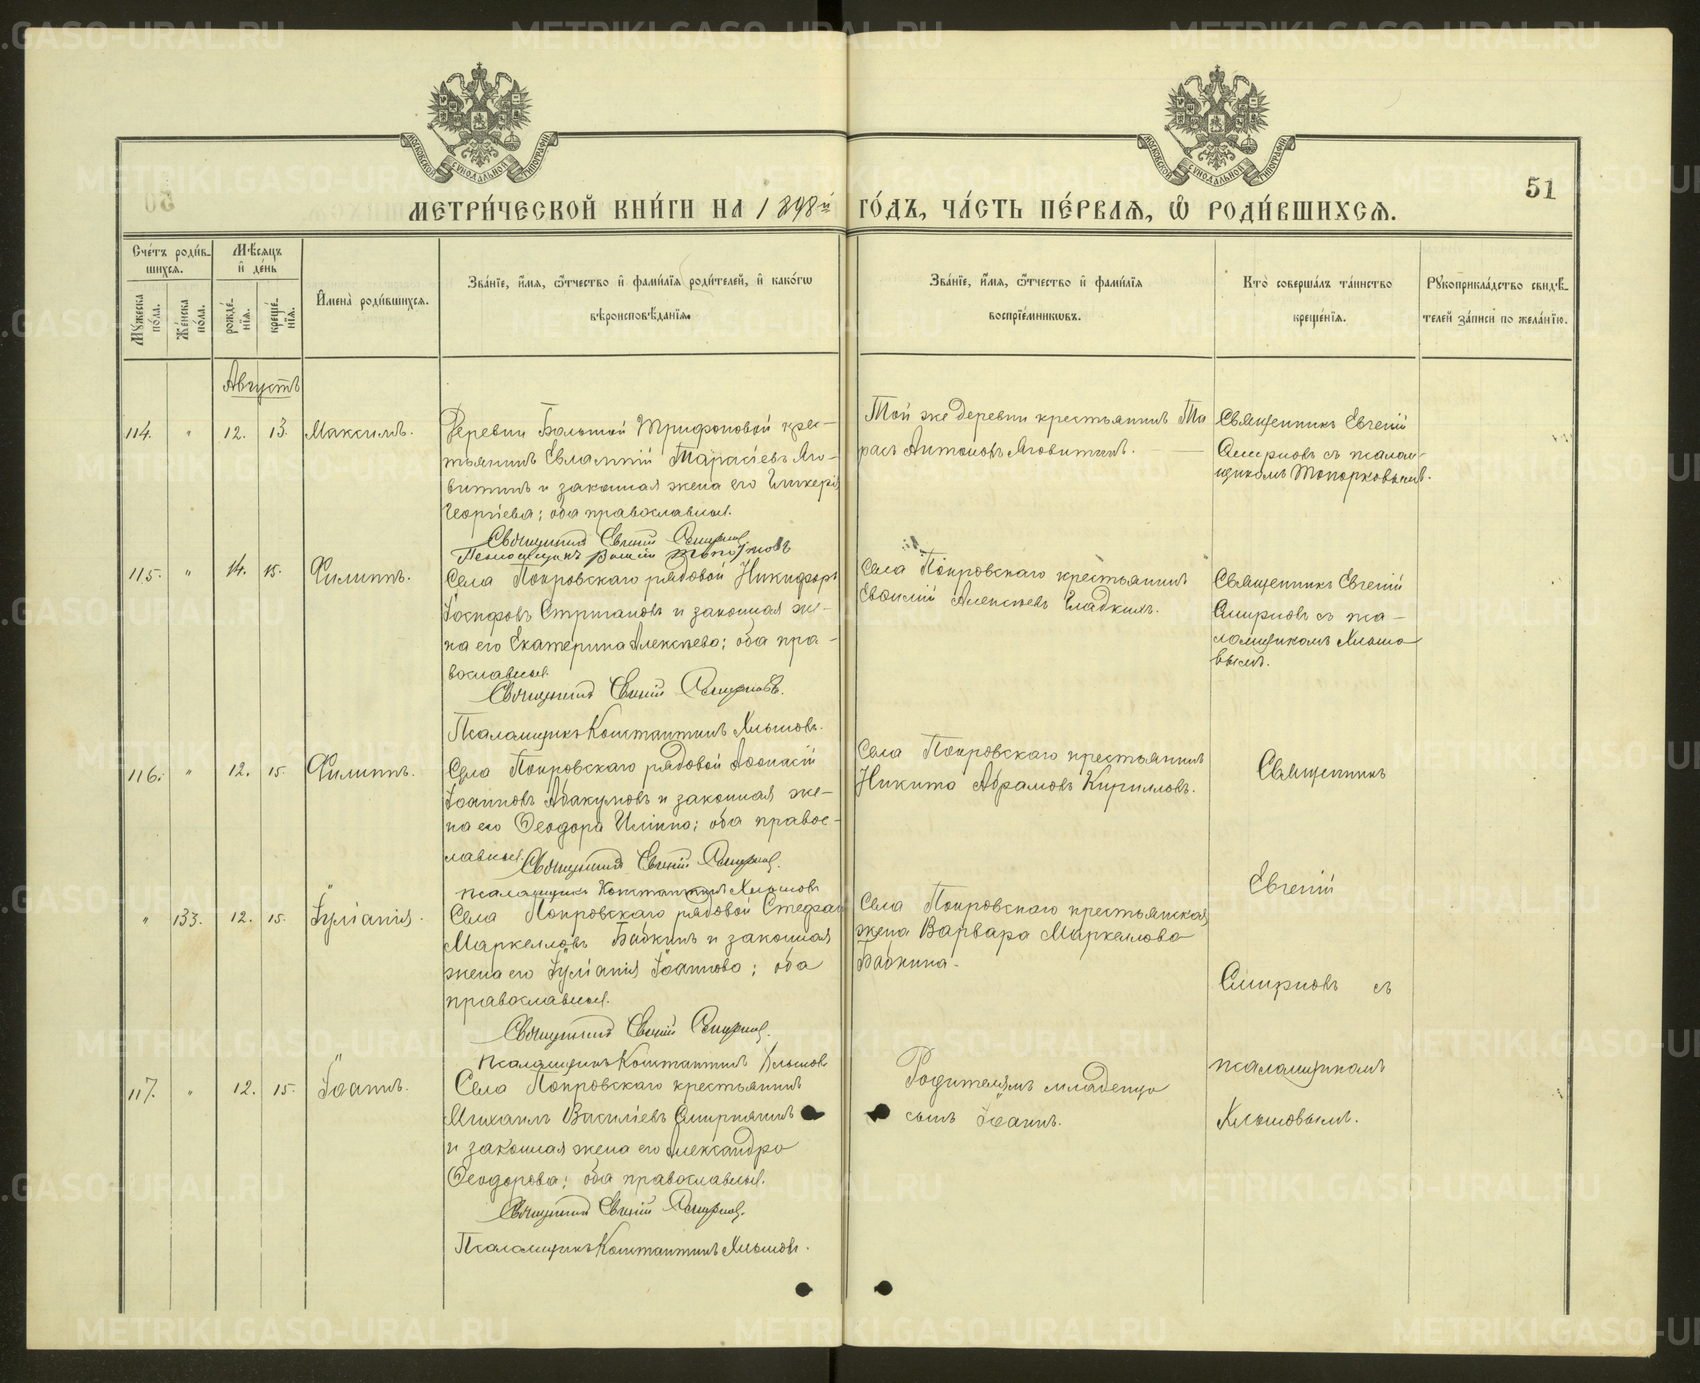 МЕТРИ́ЧЕСКОЙ КНИ́ГИ НА 1898й ГО́ДЪ, ЧА́СТЬ ПЕ́РВАѦ, Ѿ РОДИ́ВШИХСѦ.
51
Сче́тъ роди́в-
шихсѧ.
Мѣ́сѧцъ
и҆ де́нь
И҆мена̀ роди́вшихсѧ.
Зва́нїе, и҆́мѧ, ѻ҆́тчество и҆ фами́лїѧ роди́телей, и҆ како́гѡ
вѣроисповѣ́данїѧ.
Зва́нїе, и҆́мѧ, ѻ҆́тчество и҆ фами́лїѧ
воспрїе́мникѡвъ.
Кто̀ соверша́лъ та́инство
креще́нїѧ.
Рꙋкоприкла́дство свидѣ́-
телей за́писи по жела́нїю.
Мꙋ́жеска
по́ла.
Же́нска
по́ла.
рожде́-
нїѧ.
креще́-
нїѧ.
Августъ
114.
"
12.
13.
Максимъ.
Деревни Большой Трифоновой крес-
тьянинъ Евлампій Тарасіевъ Яго-
витинъ и законная жена его Гликерія
Георгіева; оба православные.
Священникъ Евгеній Смирновъ
Той же деревни крестьянинъ Та
расъ Антоновъ Яговитинъ.
Священникъ Евгеній
Смирновъ съ псалом-
щикомъ Топорковымъ.
115.
"
14.
15.
Филиппъ.
Села Покровскаго рядовой Никифоръ
Іосифовъ Стригановъ и законная же-
на его Екатерина Алексѣева; оба пра-
вославные.
Священникъ Евгеній Смирновъ.
Псаломщикъ Константинъ Хлыновъ.
Села Покровскаго крестьянинъ
Василій Алексѣевъ Гладкихъ.
Священникъ Евгеній
Смирновъ съ пса-
ломщикомъ Хлыно
вымъ.
116.
"
12.
15.
Филиппъ.
Села Покровскаго рядовой Аѳонасій
Іоанновъ Абакумовъ и законная же-
на его Ѳеодора Иліина; оба правос-
лавные.
Священникъ Евгеній Смирновъ.
Псаломщикъ Константинъ Хлыновъ
Села Покровскаго крестьянинъ
Никита Абрамовъ Кирилловъ.
Священникъ
"
133.
12.
15.
Іуліанія.
Села Покровскаго рядовой Стефанъ
Маркелловъ Бабкинъ и законная
жена его Іуліанія Іоаннова; оба
православные.
Священникъ Евгеній Смирновъ.
Псаломщикъ Константинъ Хлыновъ
Села Покровскаго крестьянская
жена Варвара Маркеллова
Бабкина.
Евгеній
Смирновъ съ
117.
"
12.
15.
Іоаннъ.
Села Покровскаго крестьянинъ
Михаилъ Василіевъ Смирнягинъ
и законная жена его Александра
Ѳеодорова; оба православные.
Священникъ Евгеній Смирновъ.
Псаломщикъ Константинъ Хлыновъ.
Родителямъ младенца
сынъ Іоаннъ.
псаломщикомъ
Хлыновымъ.